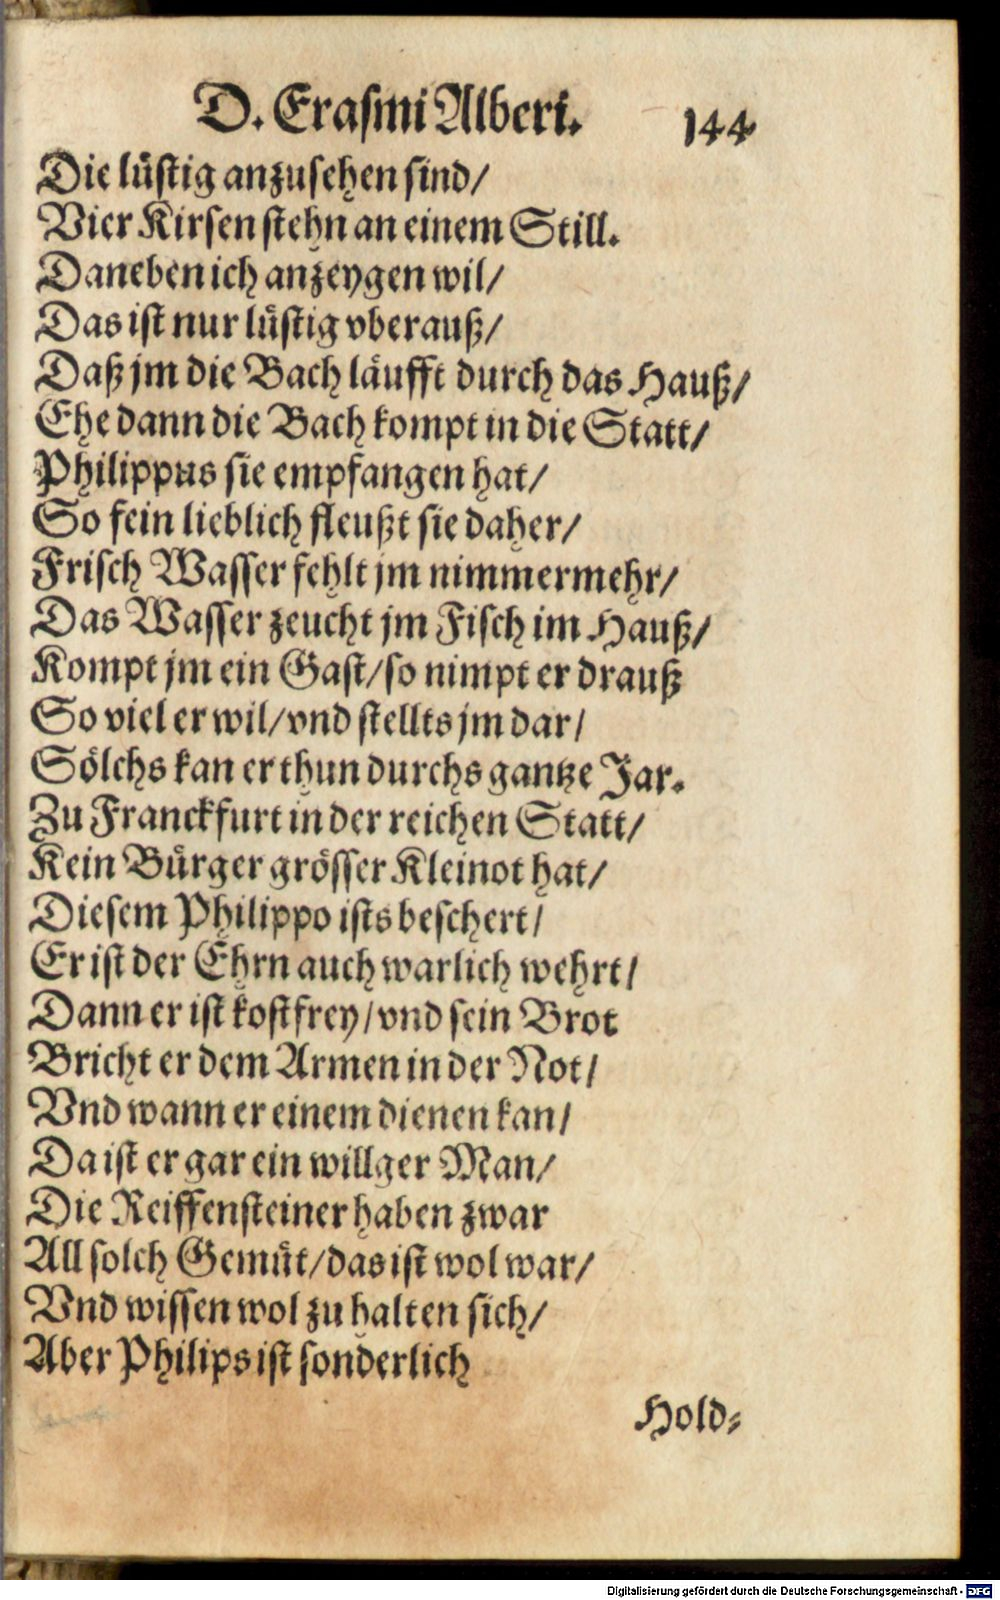 D. Erasmi Alberi. 144
Die lüstig anzusehen sind/
Vier Kirsen stehn an einem Still.
Daneben ich anzeygen wil/
Das ist nur lüstig vberauß/
Daß jm die Bach läufft durch das Hauß/
Ehe dann die Bach kompt in die Statt/
Philippus sie empfangen hat/
So fein lieblich fleußt sie daher/
Frisch Wasser fehlt jm nimmermehr/
Das Wasser zeucht jm Fisch im Hauß/
Kompt jm ein Gast/so nimpt er drauß
So viel er wil/vnd stellts jm dar/
Sölchs kan er thun durchs gantze Jar.
Zu Franckfurt in der reichen Statt/
Kein Bürger grösser Kleinot hat/
Diesem Philippo ists beschert/
Er ist der Ehrn auch warlich wehrt/
Dann er ist kostfrey/vnd sein Brot
Bricht er dem Armen in der Not/
Vnd wann er einem dienen kan/
Da ist er gar ein willger Man/
Die Reiffensteiner haben zwar
All solch Gemüt/das ist wol war/
Vnd wissen wol zu halten sich/
Aber Philips ist sonderlich
Hold-
Digitalisierung gefördert durch die Deutsche Forschungsgemeinschaft - DFG